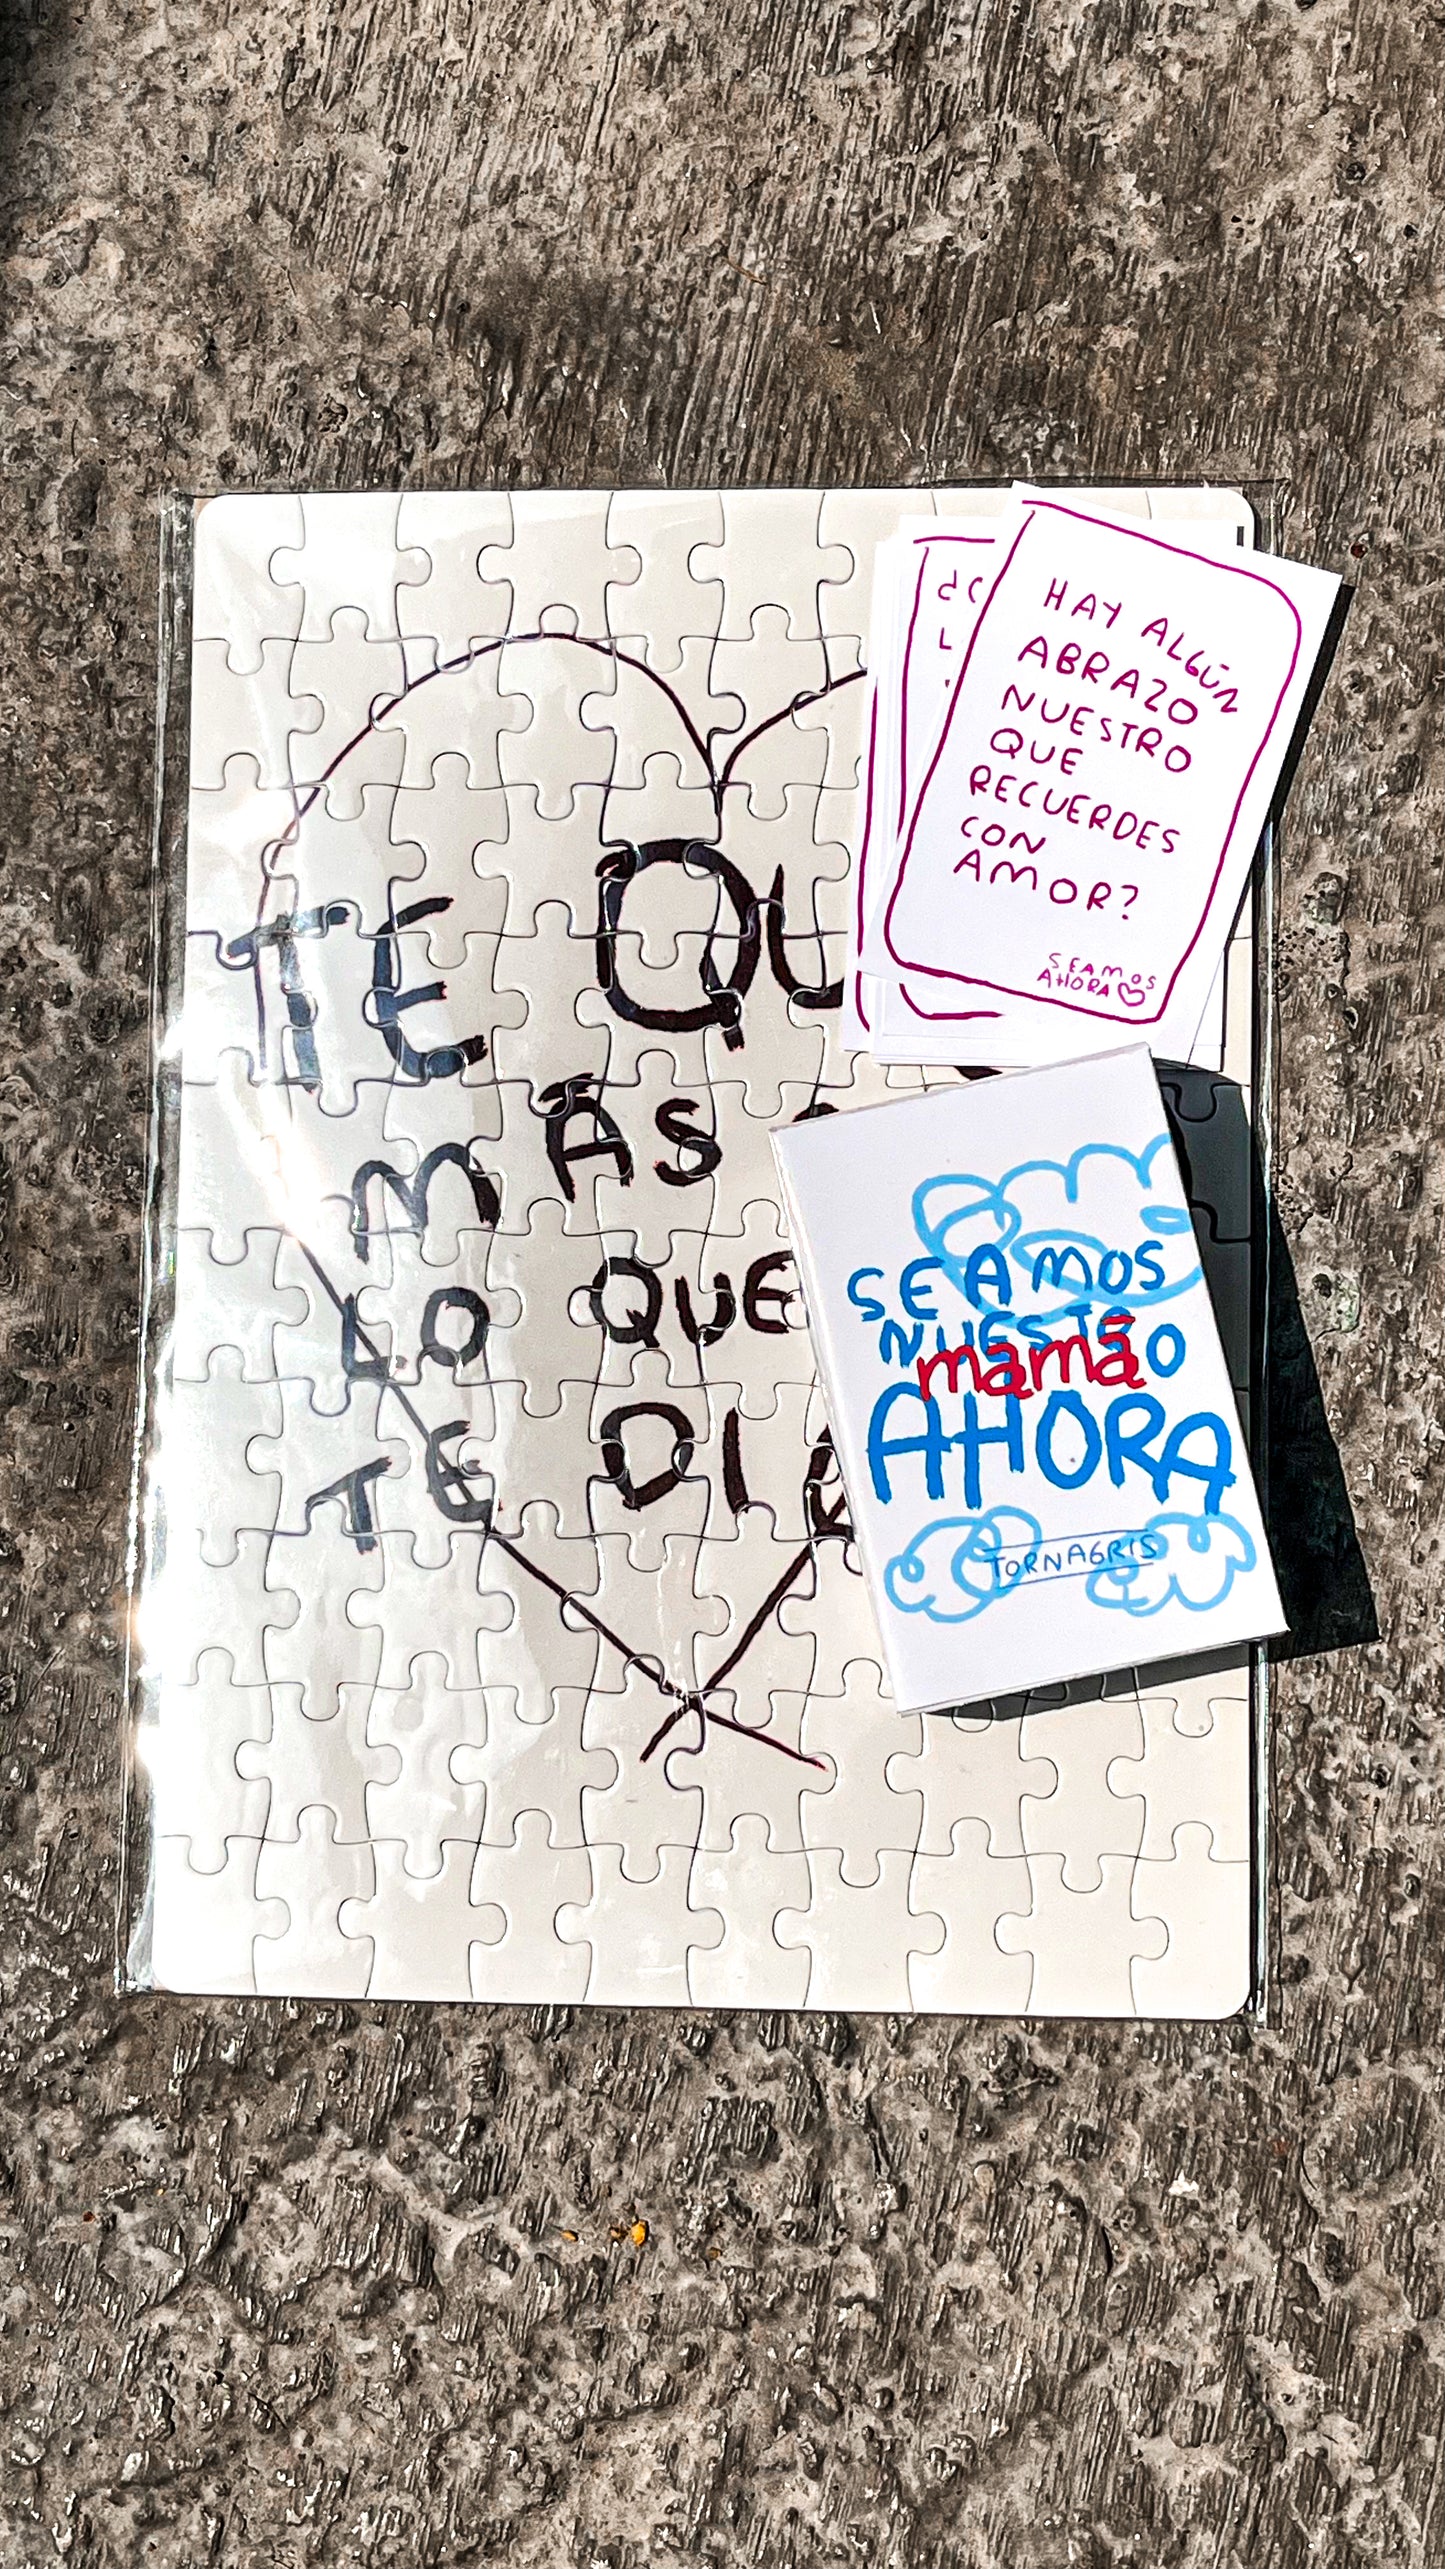 TE QU
MÁS
LO QUE
TE DI
HAY ALGÚN
ABRAZO
NUESTRO
QUE
RECUERDES
CON
AMOR?
SEAMOS
AHORA
SEAMOS
NUESTRO
mamá
AHORA
TORNAGRIS